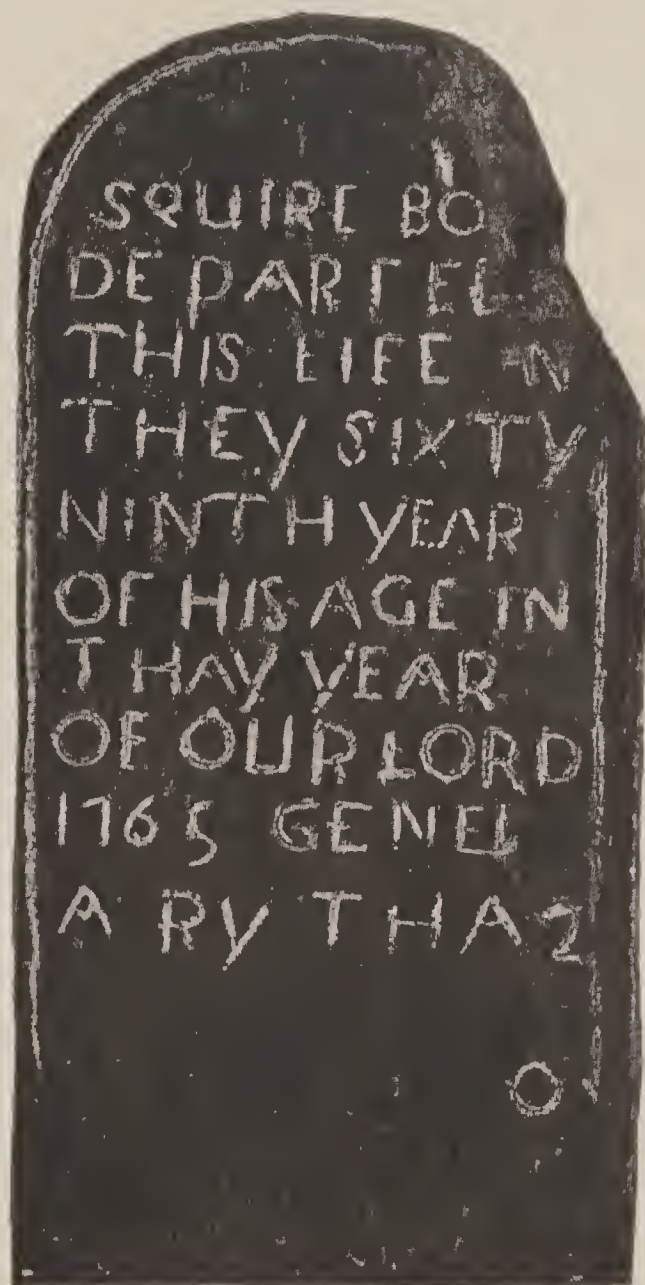 SQUIRE BO
DEPARTEL
THIS LIFE IN
THEY SIXTY
NINTH YEAR
OF HIS AGE IN
THAY YEAR
OF OUR LORD
1765 GENEL
ARY THA 2
O